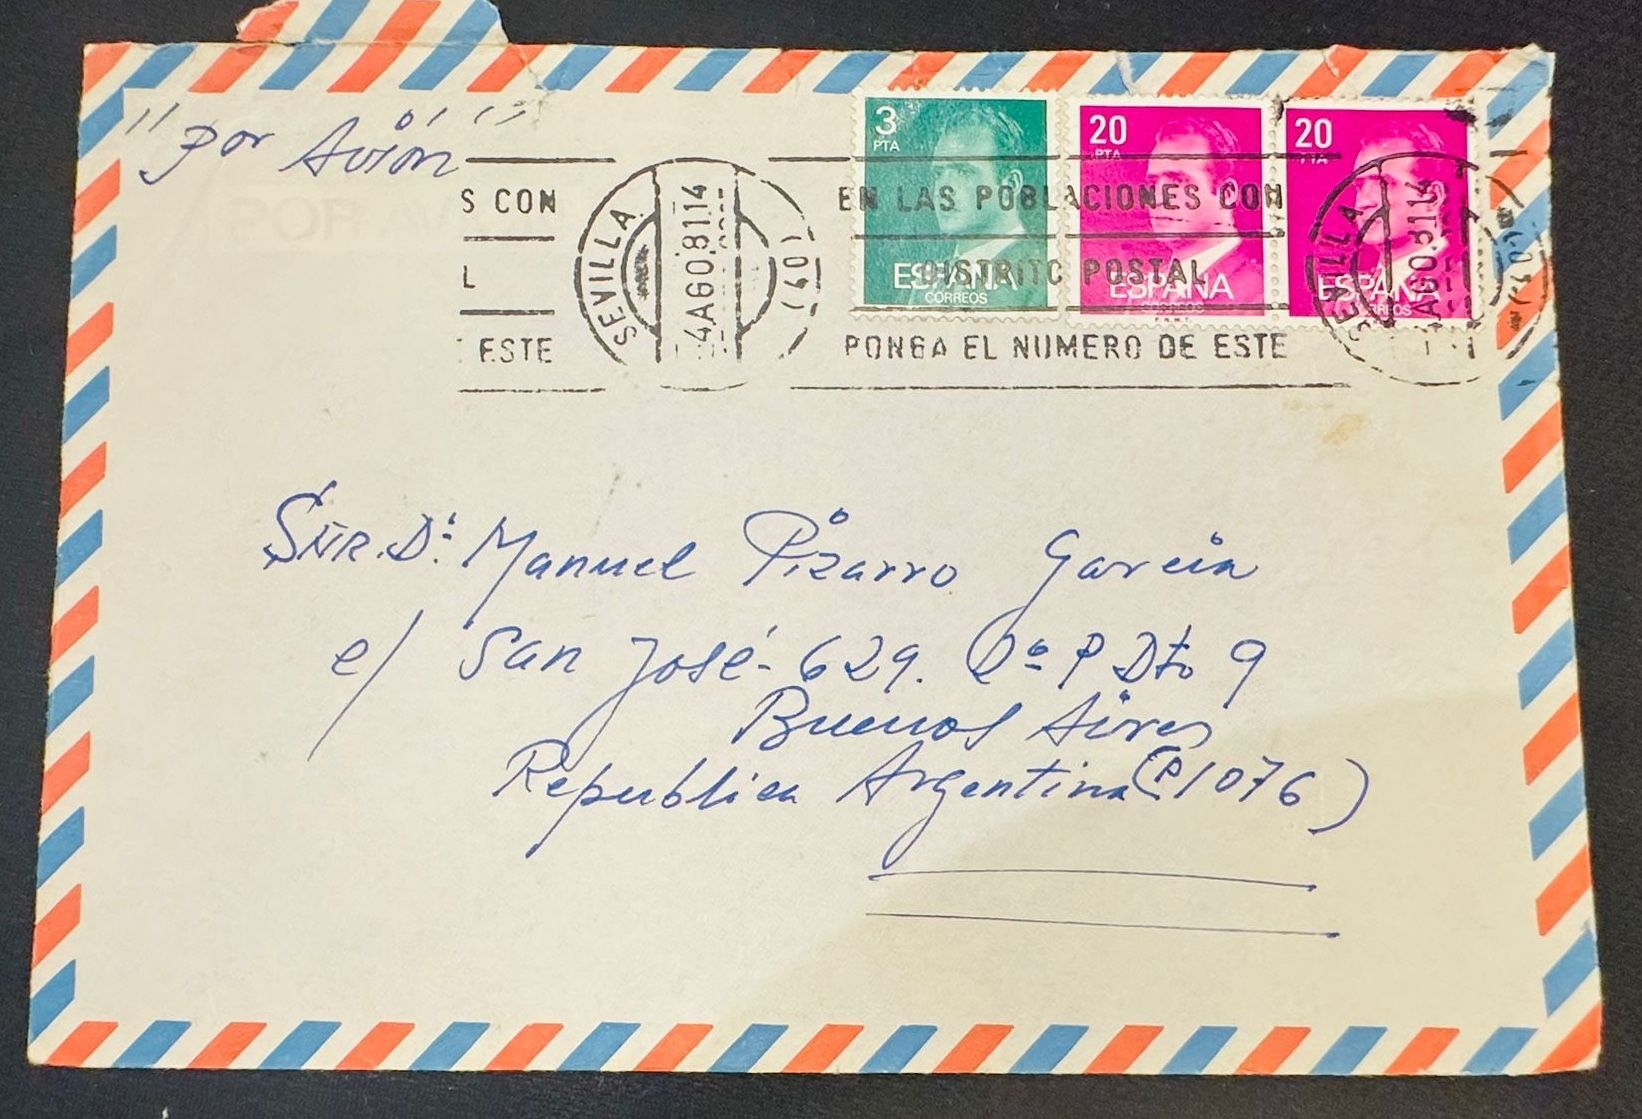 "Por Avión"
3
PTA
ESPAÑA
CORREOS
20
PTA
ESPAÑA
CORREOS
F.N.M.T.
20
PTA
ESPAÑA
CORREOS
S CON
L
ESTE
SEVILLA
4 AGO.81 14
(40)
EN LAS POBLACIONES CON
DISTRITO POSTAL
PONGA EL NUMERO DE ESTE
SEVILLA
4 AGO.81 14
Sñr. D: Manuel Pizarro Garcia
c/ San José - 629. 2º P Dto 9
Buenos Aires
Republica Argentina (P.1076)